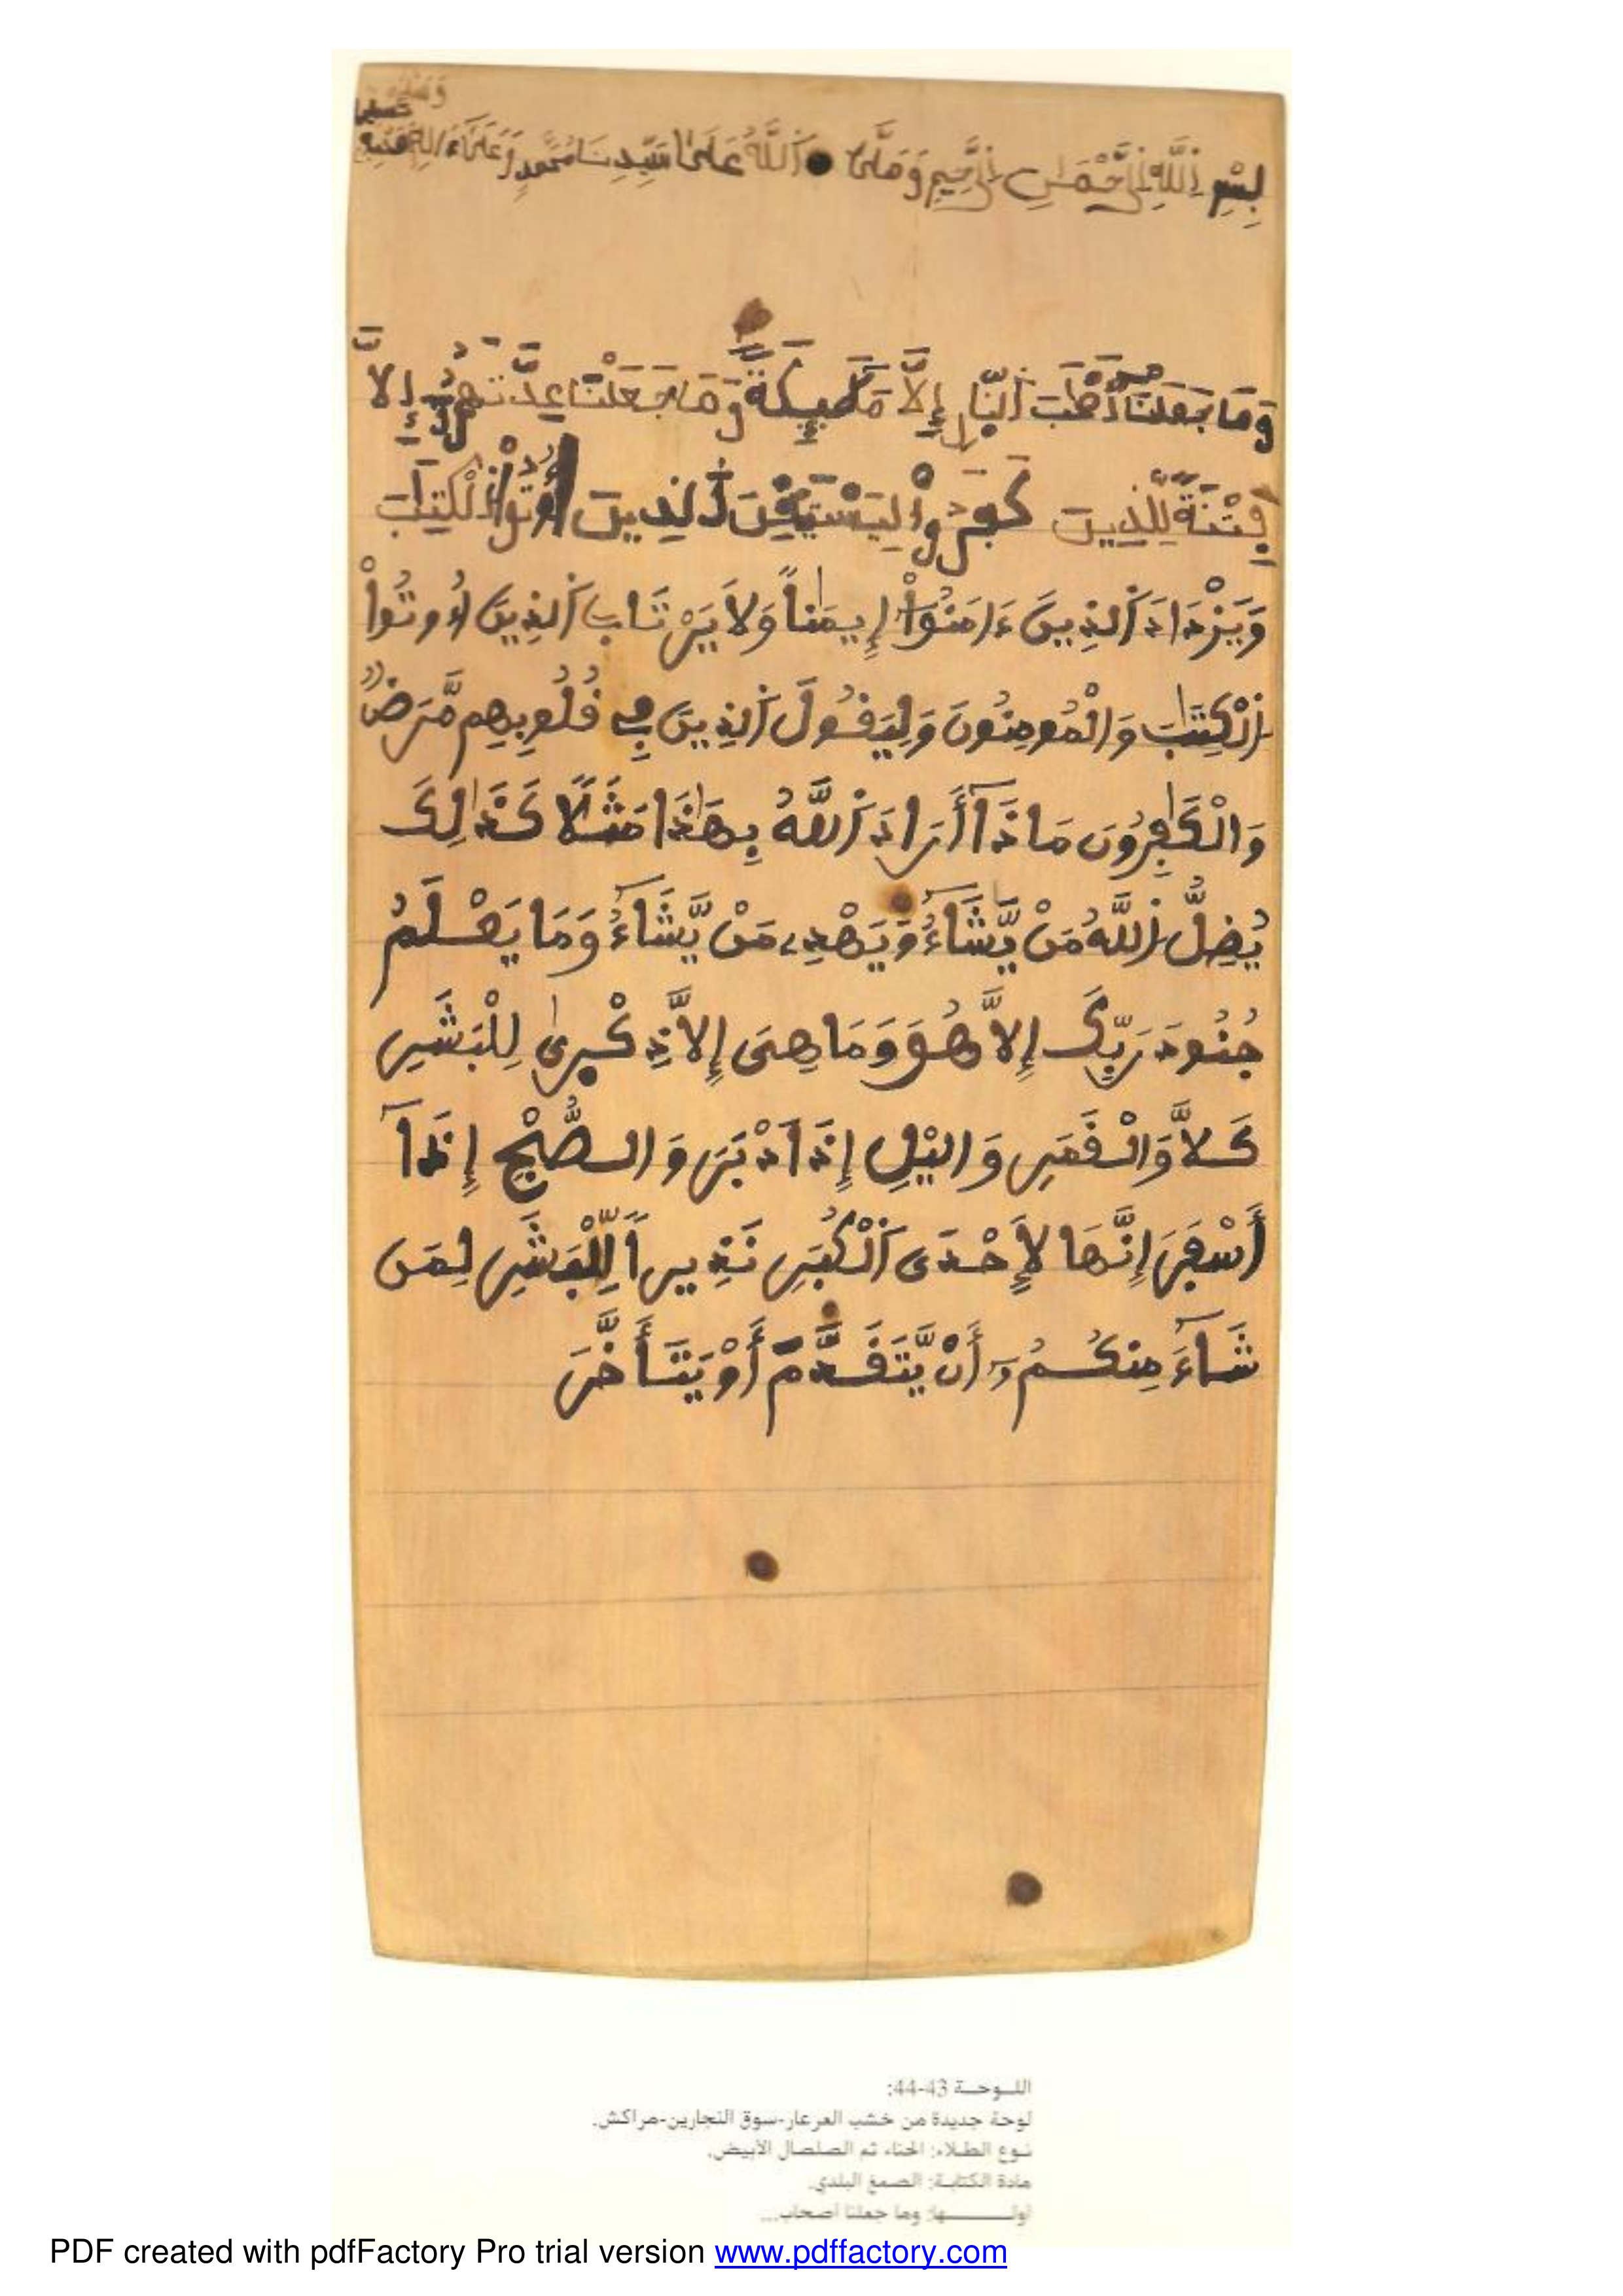 بِسْمِ اِللَّهِ اِلرَّحْمَٰنِ اِلرَّحِيمِ وَصَلَّى اَللَّهُ عَلَىٰ سَيِّدِنَا مُحَمَّدٍ وَعَلَىٰ ءَالِهِ وَصَحْبِهِ
وَمَا جَعَلْنَا أَصْحَٰبَ اَلنّ۪ارِ إِلَّا مَلَٰٓئِكَةً وَمَا جَعَلْنَا عِدَّتَهُمُۥٓ إِلَّا
فِتْنَةً لِّلذِينَ كَفَرُواْ لِيَسْتَيْقِنَ اَلذِينَ أُوتُواْ اُلْكِتَٰبَ
وَيَزْدَادَ اَلذِينَ ءَامَنُوٓاْ إِيمَٰناً وَلَا يَرْتَابَ اَلذِينَ أُوتُواْ
اُلْكِتَٰبَ وَالْمُومِنُونَ وَلِيَقُولَ اَلذِينَ فِے قُلُوبِهِم مَّرَضٌ
وَالْكَٰفِرُونَ مَاذَآ أَرَادَ اَللَّهُ بِهَٰذَا مَثَلًا كَذَٰلِكَ
يُضِلُّ اُللَّهُ مَنْ يَّشَآءُ وَيَهْدِے مَنْ يَّشَآءُ وَمَا يَعْلَمُ
جُنُودَ رَبِّكَ إِلَّا هُوَ وَمَا هِىَ إِلَّا ذِكْر۪ىٰ لِلْبَشَرِ
كَلَّا وَالْقَمَرِ وَاليْلِ إِذَ اَدْبَرَ وَالصُّبْحِ إِذَآ
أَسْفَرَ إِنَّهَا لَإِحْدَى اَلْكُبَرِ نَذِيراً لِّلْبَشَرِ لِمَن
شَآءَ مِنكُمُۥٓ أَنْ يَّتَقَدَّمَ أَوْ يَتَأَخَّرَ
اللوحة 43-44:
لوحة جديدة من خشب العرعار-سوق النجارين-مراكش.
نوع الطلاء: الحناء ثم الصلصال الأبيض.
مادة الكتابة: الصمغ البلدي.
أولـــها: وما جعلنا أصحاب...
PDF created with pdfFactory Pro trial version www.pdffactory.com